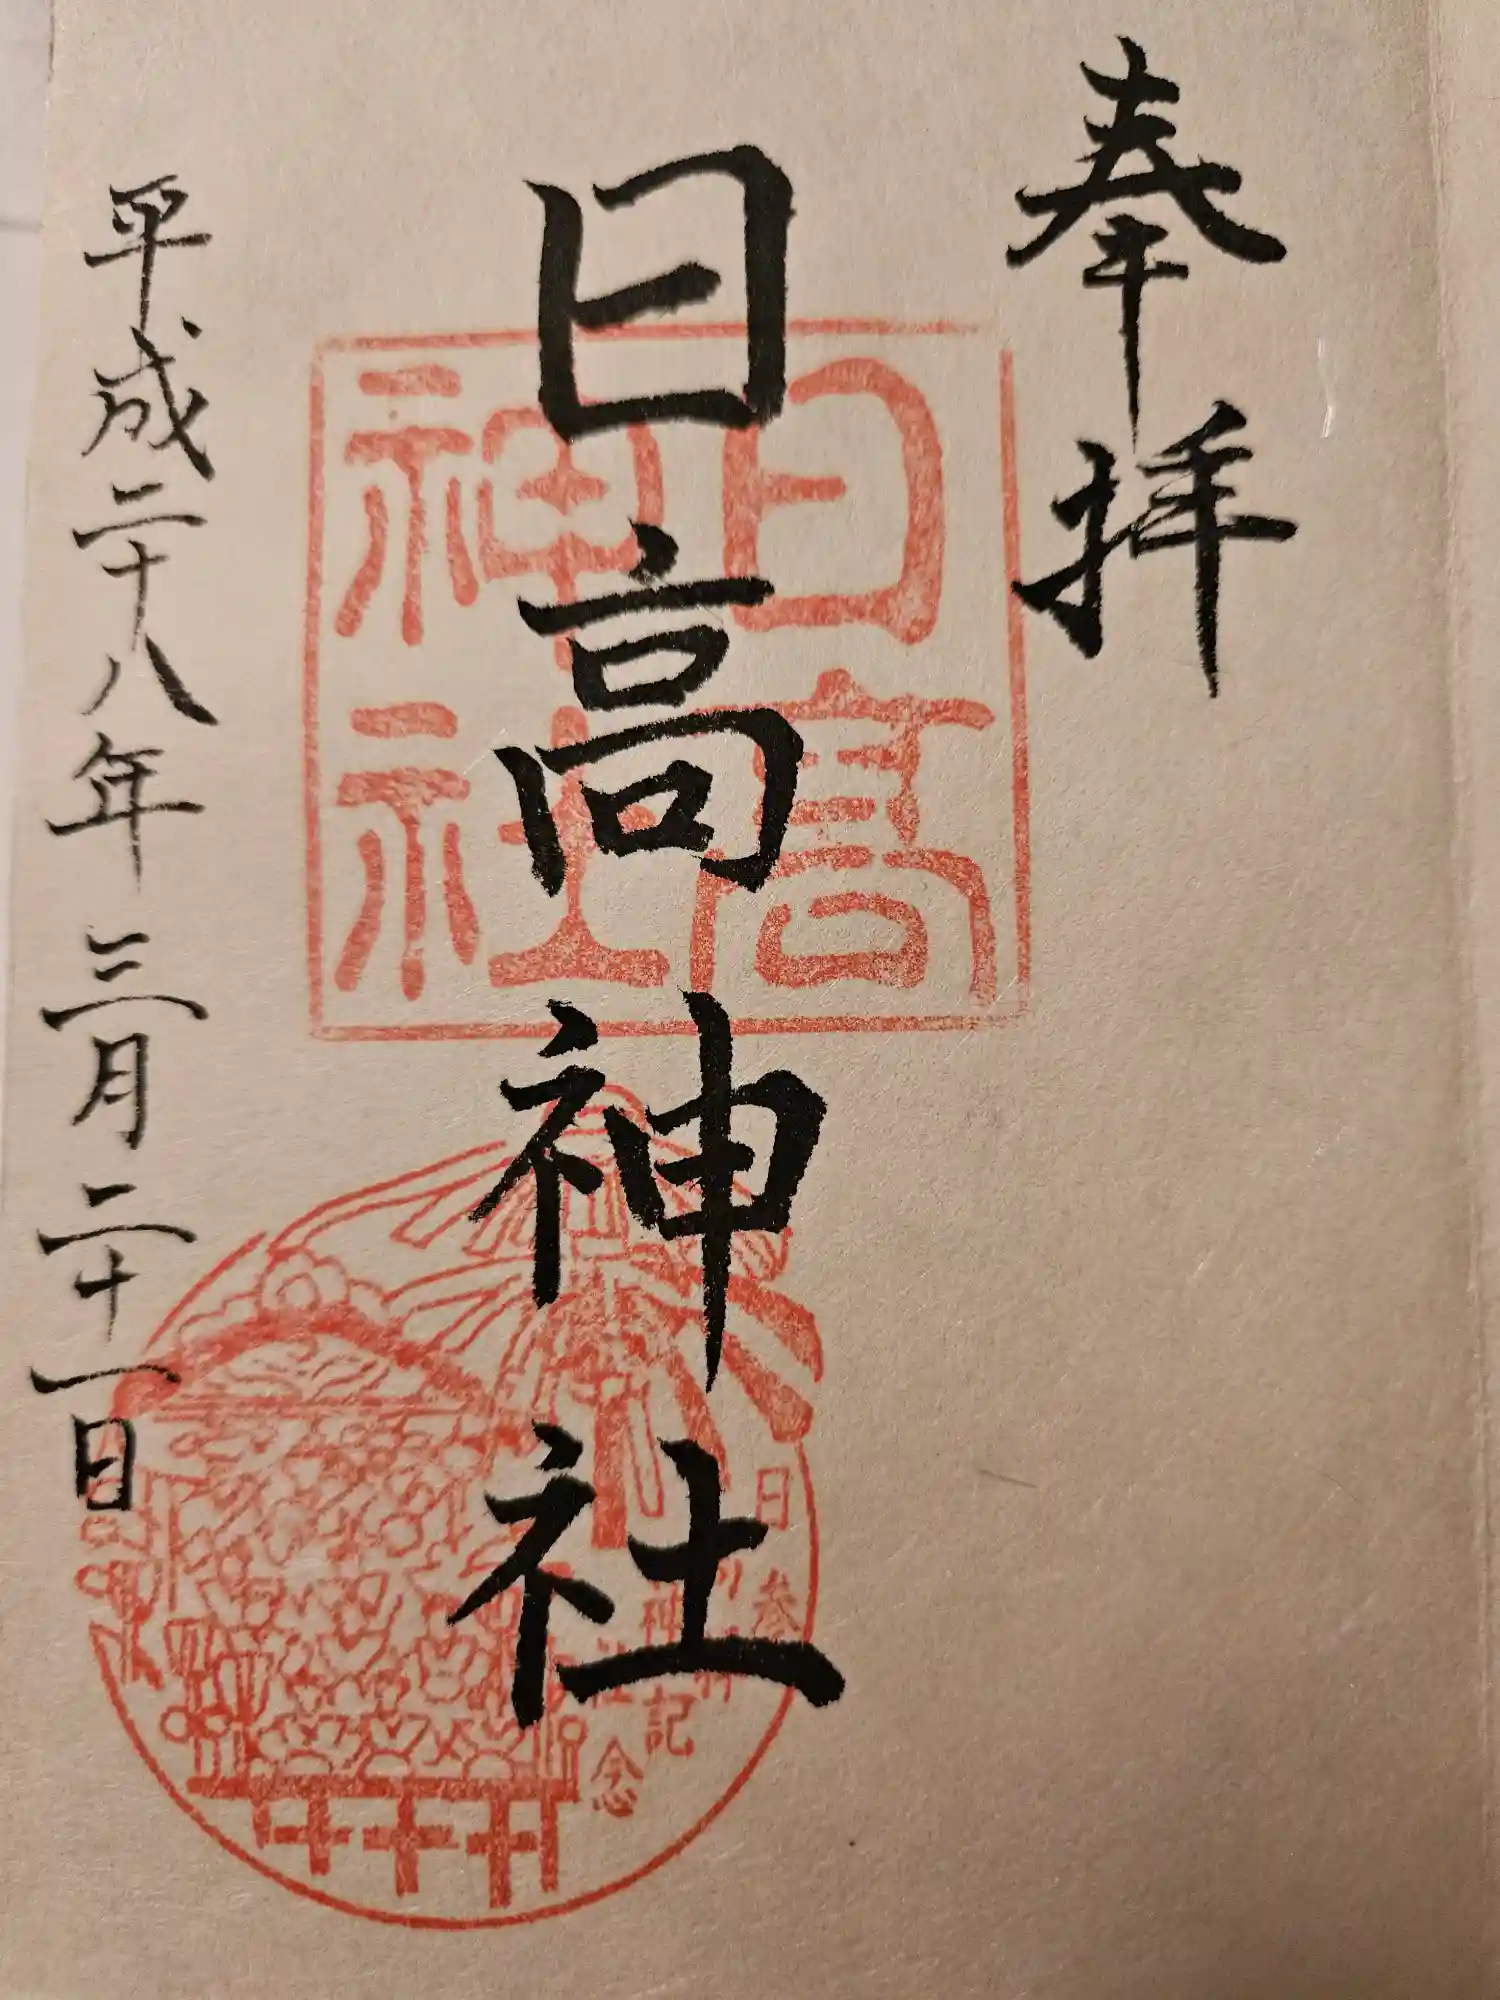 奉拝
日高神社
日高
神社
平成二十八年三月二十一日
日参
神
社
記
念